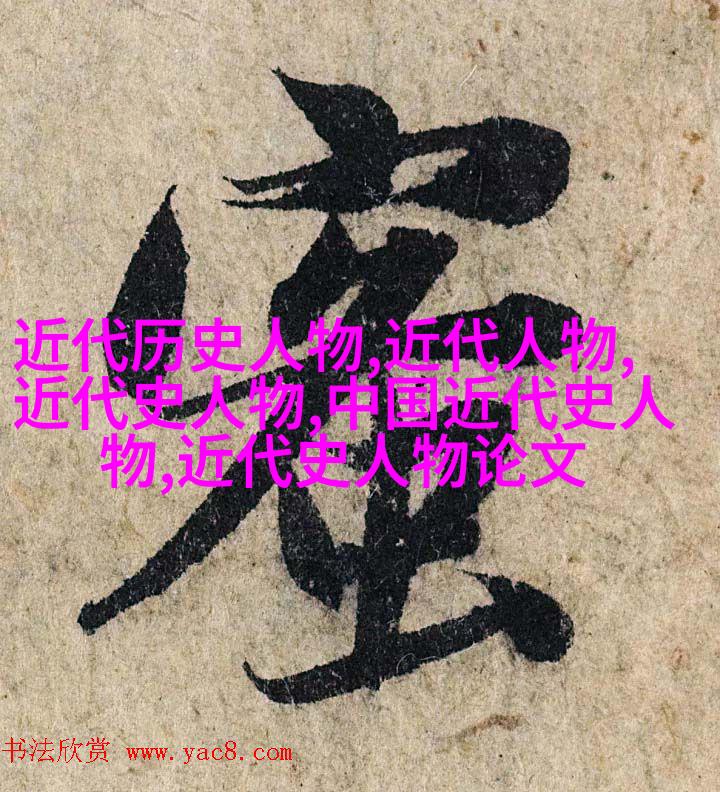 近代历史人物,近代人物,
近代史人物,中国近代史人
物,近代史人物论文
书法欣赏 www.yac8.com